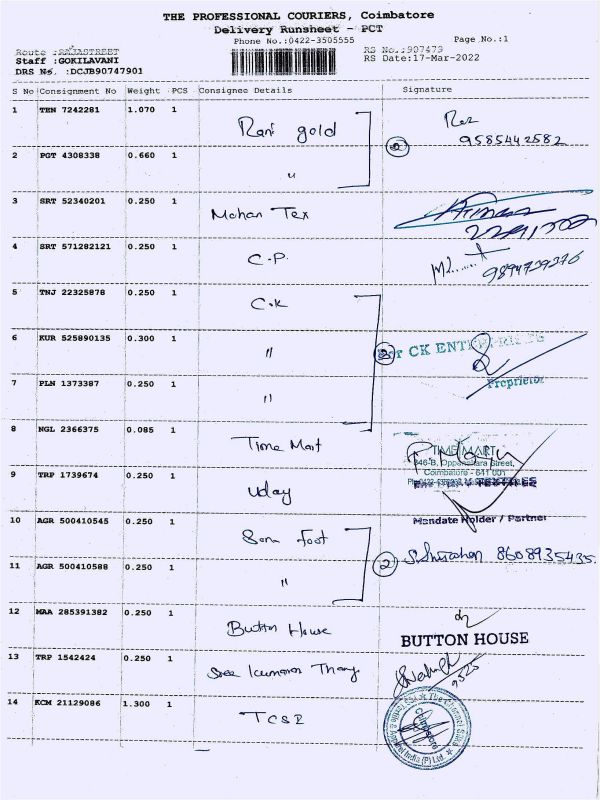 THE PROFESSIONAL COURIERS, Coimbatore
Delivery Runsheet - PCT
Phone No.:0422-3505555
Page No.:1
Route :RAJASTREET
RS No.:907479
Staff :GOKILAVANI
RS Date:17-Mar-2022
DRS No. :DCJB90747901
S No Consignment No Weight PCS Consignee Details Signature
1 TEN 7242281 1.070 1 Rani gold
9585442582
2 PGT 4308338 0.660 1 "
2
3 SRT 52340201 0.250 1 Mohan Tex
4 SRT 571282121 0.250 1 C.P.
9894739376
5 TNJ 22325878 0.250 1 C.K
6 KUR 525890135 0.300 1 "
3 For CK ENTERPRISES
7 PLN 1373387 0.250 1 "
Proprietor
8 NGL 2366375 0.085 1 Time Mart
TIME MART
Coimbatore - 641 001
9 TRP 1739674 0.250 1 Uday
Mandate Holder / Partner
10 AGR 500410545 0.250 1 foot
2 8608935435
11 AGR 500410588 0.250 1 "
12 MAA 285391382 0.250 1 Button House
BUTTON HOUSE
13 TRP 1542424 0.250 1 Sree Kumaran Thanga
14 KCM 21129086 1.300 1 TCSE